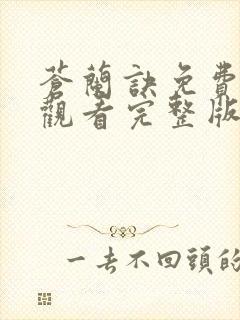 蒼蘭訣免費
觀看完整版
一去不回頭的